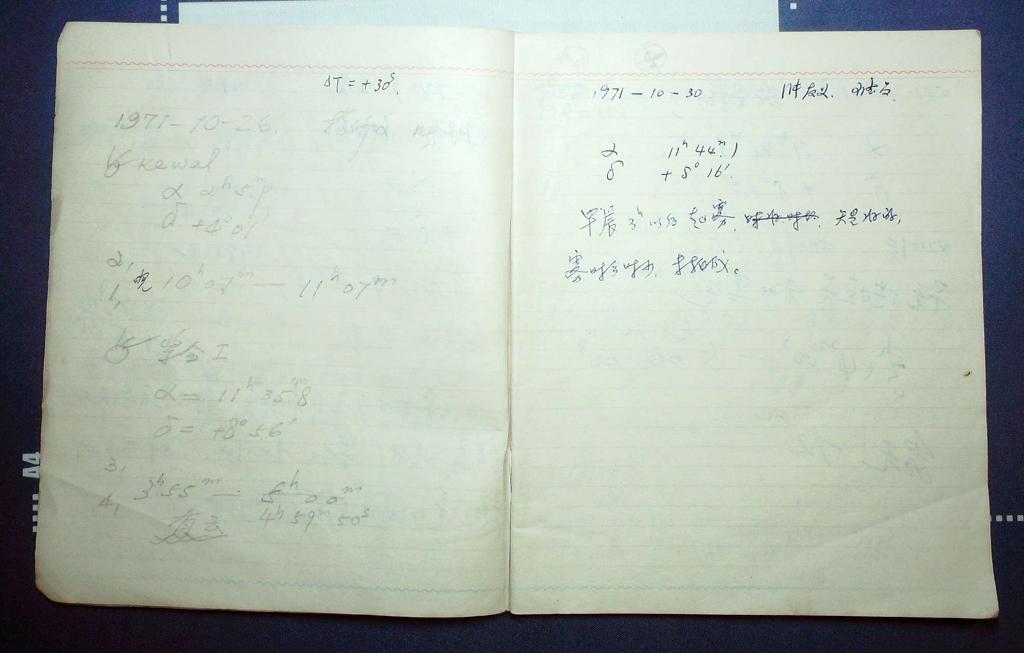 ΔT = +30ˢ.
1971-10-26.
Kewal
α 2ʰ 5ᵐ.
δ +4° 01′
2,
1, 晚 10ʰ 07ᵐ — 11ʰ 07ᵐ
紫金 I
α = 11ʰ 35ᵐ.8
δ = +8° 56′
3,
3ʰ 55ᵐ — 5ʰ 00ᵐ
4, 4ʰ 59ᵐ 50ˢ
有云
1971-10-30
α 11ʰ 44ᵐ.1
δ +8° 16′.
早晨 3ʰ 以后起雾, 天是好的,
雾时多时少, 未拍成。
A4